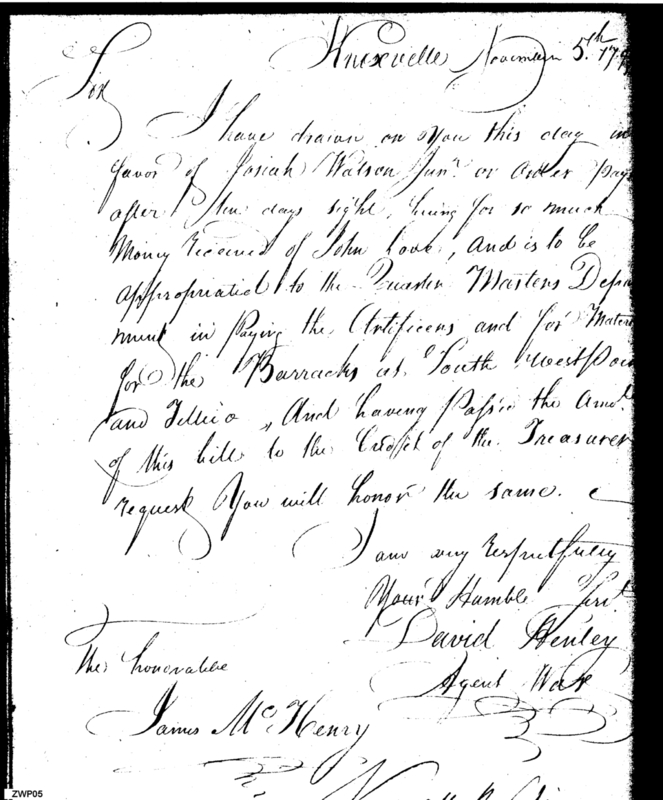 Knoxville November 5th. 179
Sir
I have drawn on You this day in
favor of Josiah Watson Junr. or order pay
after ten days sight, being for so much
Money received of John Love, and is to be
appropriated to the Quarter Masters Depa
ment in paying the Artificers and for Mater
for the Barracks at South west Poin
and Tellico, And having Pass'd the Amot.
of this bill to the Credit of the Treasurer
request You will honor the same.
I am very respectfully
Your Humble Sert.
David Henley
Agent War
The honorable
James McHenry
ZWP05